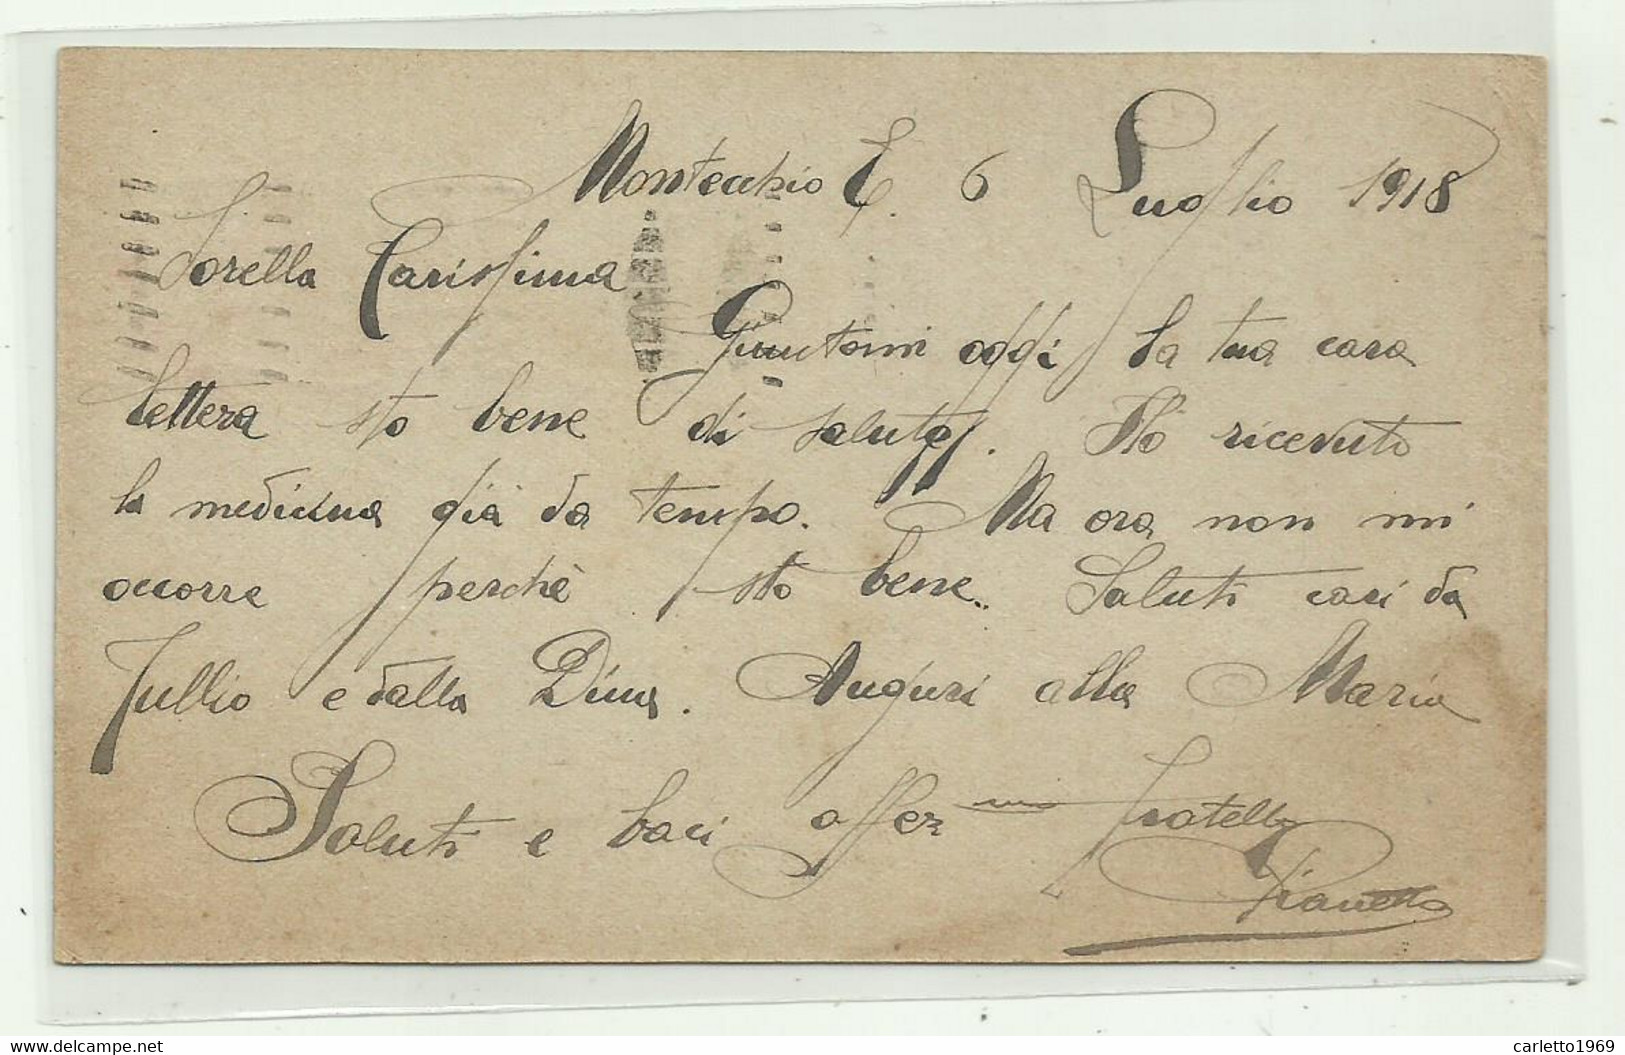 Montecchio E. 6 Luglio 1918
Sorella Carissima
Giuntami oggi la tua cara
lettera sto bene di salute. Hò ricevuto
la medicina già da tempo. Ma ora non mi
occorre perchè sto bene.. Saluti cari da
Tullio e dalla Dina. Auguri alla Maria
Saluti e baci affez mo fratello
delcampe.net
carletto1969